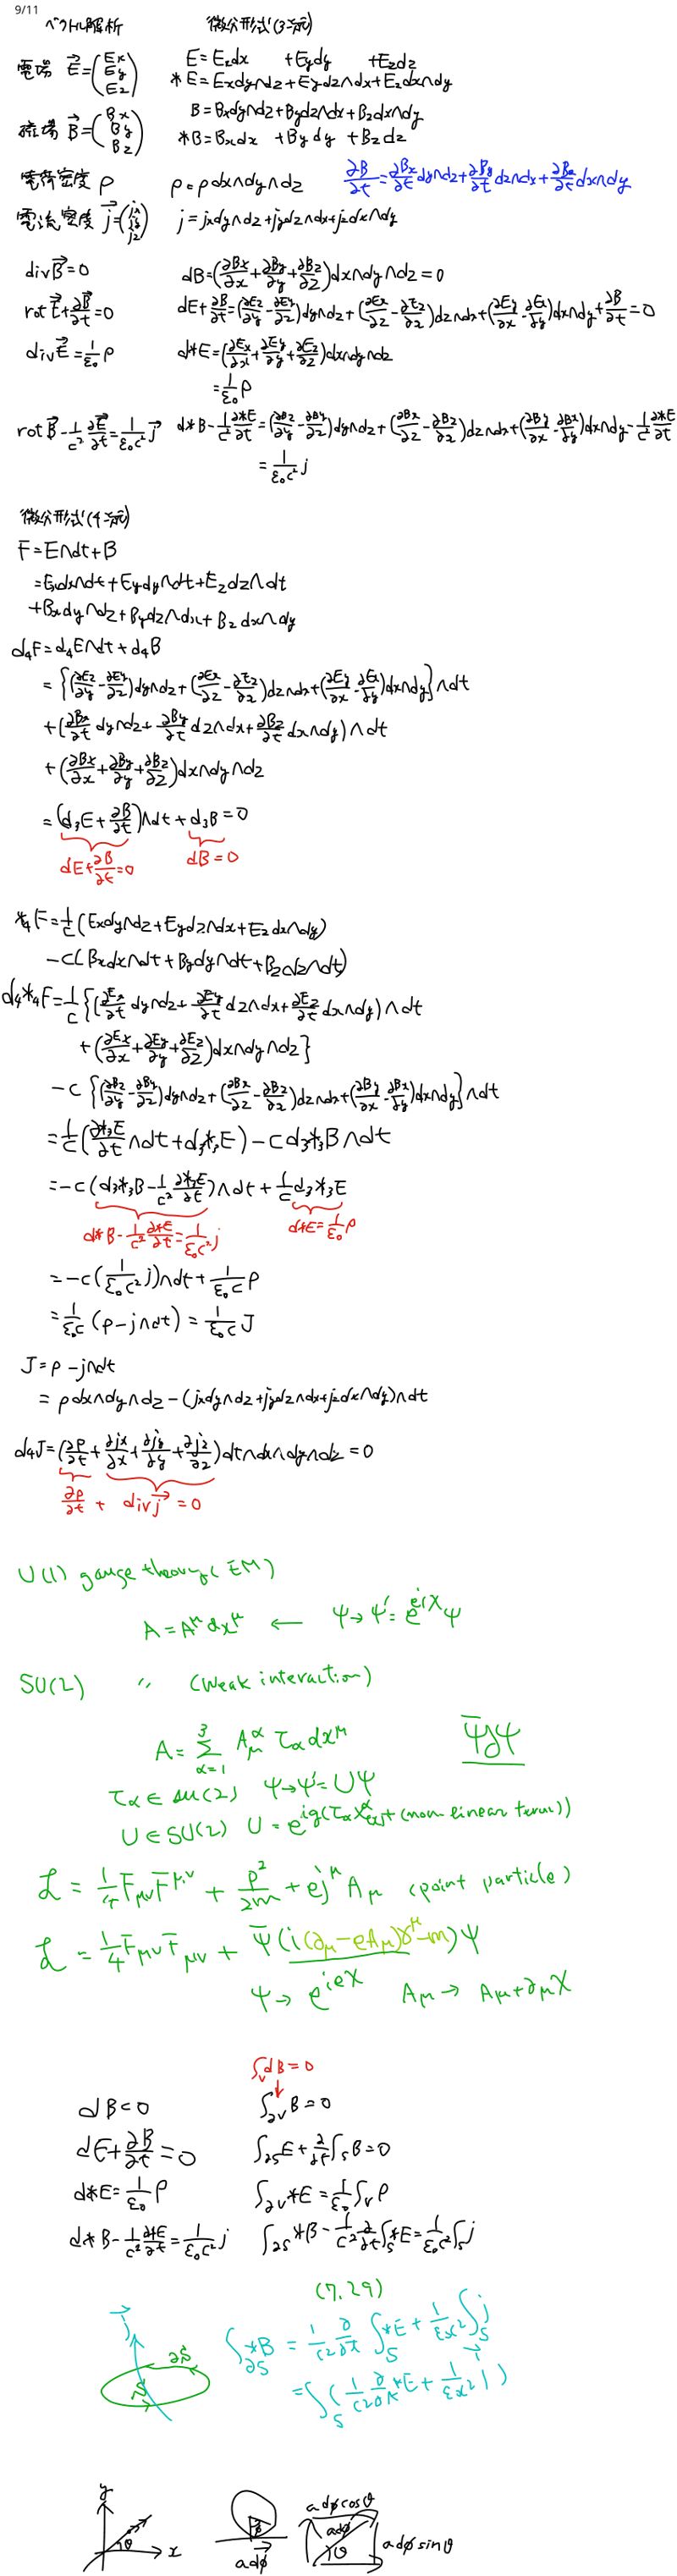 9/11
ベクトル解析 微分形式(3次元)
電場 \vec{E}=(Ex Ey Ez) E=Exdx+Eydy+Ezdz
*E=Exdy∧dz+Eydz∧dx+Ezdx∧dy
磁場 \vec{B}=(Bx By Bz) B=Bxdy∧dz+Bydz∧dx+Bzdx∧dy
*B=Bxdx+Bydy+Bzdz
電荷密度 ρ ρ=ρdx∧dy∧dz ∂B/∂t=∂Bx/∂t dy∧dz+∂By/∂t dz∧dx+∂Bz/∂t dx∧dy
電流密度 \vec{j}=(jx jy jz) j=jxdy∧dz+jydz∧dx+jzdx∧dy
div\vec{B}=0 dB=(∂Bx/∂x+∂By/∂y+∂Bz/∂z)dx∧dy∧dz=0
rot\vec{E}+∂\vec{B}/∂t=0 dE+∂B/∂t=(∂Ez/∂y-∂Ey/∂z)dy∧dz+(∂Ex/∂z-∂Ez/∂x)dz∧dx+(∂Ey/∂x-∂Ex/∂y)dx∧dy+∂B/∂t=0
div\vec{E}=1/ε₀ ρ d*E=(∂Ex/∂x+∂Ey/∂y+∂Ez/∂z)dx∧dy∧dz
=1/ε₀ ρ
rot\vec{B}-1/c² ∂\vec{E}/∂t=1/ε₀c² \vec{j} d*B-1/c² ∂*E/∂t=(∂Bz/∂y-∂By/∂z)dy∧dz+(∂Bx/∂z-∂Bz/∂x)dz∧dx+(∂By/∂x-∂Bx/∂y)dx∧dy-1/c² ∂*E/∂t
=1/ε₀c² j
微分形式(4次元)
F=E∧dt+B
=Exdx∧dt+Eydy∧dt+Ezdz∧dt
+Bxdy∧dz+Bydz∧dx+Bzdx∧dy
d₄F=d₄E∧dt+d₄B
={(∂Ez/∂y-∂Ey/∂z)dy∧dz+(∂Ex/∂z-∂Ez/∂x)dz∧dx+(∂Ey/∂x-∂Ex/∂y)dx∧dy}∧dt
+(∂Bx/∂t dy∧dz+∂By/∂t dz∧dx+∂Bz/∂t dx∧dy)∧dt
+(∂Bx/∂x+∂By/∂y+∂Bz/∂z)dx∧dy∧dz
=(d₃E+∂B/∂t)∧dt+d₃B=0
dE+∂B/∂t=0 dB=0
*₄F=1/c(Exdy∧dz+Eydz∧dx+Ezdx∧dy)
-c(Bxdx∧dt+Bydy∧dt+Bzdz∧dt)
d₄*₄F=1/c{(∂Ex/∂t dy∧dz+∂Ey/∂t dz∧dx+∂Ez/∂t dx∧dy)∧dt
+(∂Ex/∂x+∂Ey/∂y+∂Ez/∂z)dx∧dy∧dz}
-c{(∂Bz/∂y-∂By/∂z)dy∧dz+(∂Bx/∂z-∂Bz/∂x)dz∧dx+(∂By/∂x-∂Bx/∂y)dx∧dy}∧dt
=1/c(∂*₃E/∂t∧dt+d₃*₃E)-cd₃*₃B∧dt
=-c(d₃*₃B-1/c² ∂*₃E/∂t)∧dt+1/c d₃*₃E
d*B-1/c² ∂*E/∂t=1/ε₀c² j d*E=1/ε₀ ρ
=-c(1/ε₀c² j)∧dt+1/ε₀c ρ
=1/ε₀c (ρ-j∧dt)=1/ε₀c J
J=ρ-j∧dt
=ρdx∧dy∧dz-(jxdy∧dz+jydz∧dx+jzdx∧dy)∧dt
d₄J=(∂ρ/∂t+∂jx/∂x+∂jy/∂y+∂jz/∂z)dt∧dx∧dy∧dz=0
∂ρ/∂t + div\vec{j}=0
U(1) gauge theory (EM)
A=A^μ dx^μ ← ψ→ψ'=e^{ieχ}ψ
SU(2) 〃 (Weak interaction)
A=Σ_{α=1}^{3} A_μ^α τ_α dx^μ
τ_α∈su(2) ψ→ψ'=Uψ
U∈SU(2)
ℒ=1/4 F_{μν}F^{μν}+p²/2m+ej^μA_μ (point particle)
ℒ=1/4 F_{μν}F_{μν}+\bar{ψ}(i(∂_μ-eA_μ)γ^μ-m)ψ
ψ→e^{ieχ} A_μ→A_μ+∂_μχ
∫_V dB=0
dB=0 ∫_{∂V}B=0
dE+∂B/∂t=0 ∫_{∂S}E+∂/∂t∫_S B=0
d*E=1/ε₀ ρ ∫_{∂V}*E=1/ε₀∫_V ρ
d*B-1/c² ∂*E/∂t=1/ε₀c² j ∫_{∂S}*B-1/c² ∂/∂t∫_S *E=1/ε₀c²∫_S j
(7.29)
\vec{j} ∂S S
∫_{∂S}*B=1/c² ∂/∂t∫_S *E+1/εc²∫_S j
=∫_S(1/c² ∂/∂t *E+1/εc² \vec{j})
y θ x
φ ad\vec{φ}
adφcosθ adφ θ adφsinθ